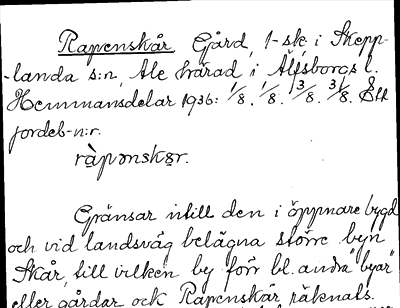 Rapenskår Gård, 1-sk. i Skepp-
-landa s:n, Ale härad i Älfsborgs l.
Hemmansdelar 1936: 1/8. 1/8. 3/8. 3/8. Ett
jordeb-n:r.
ràpənskǫr.
Gränsar intill den i öppnare bygd
och vid landsväg belägna större byn
Skår, till vilken by förr bl. andra "byar"
eller gårdar ock Rapenskår räknats.